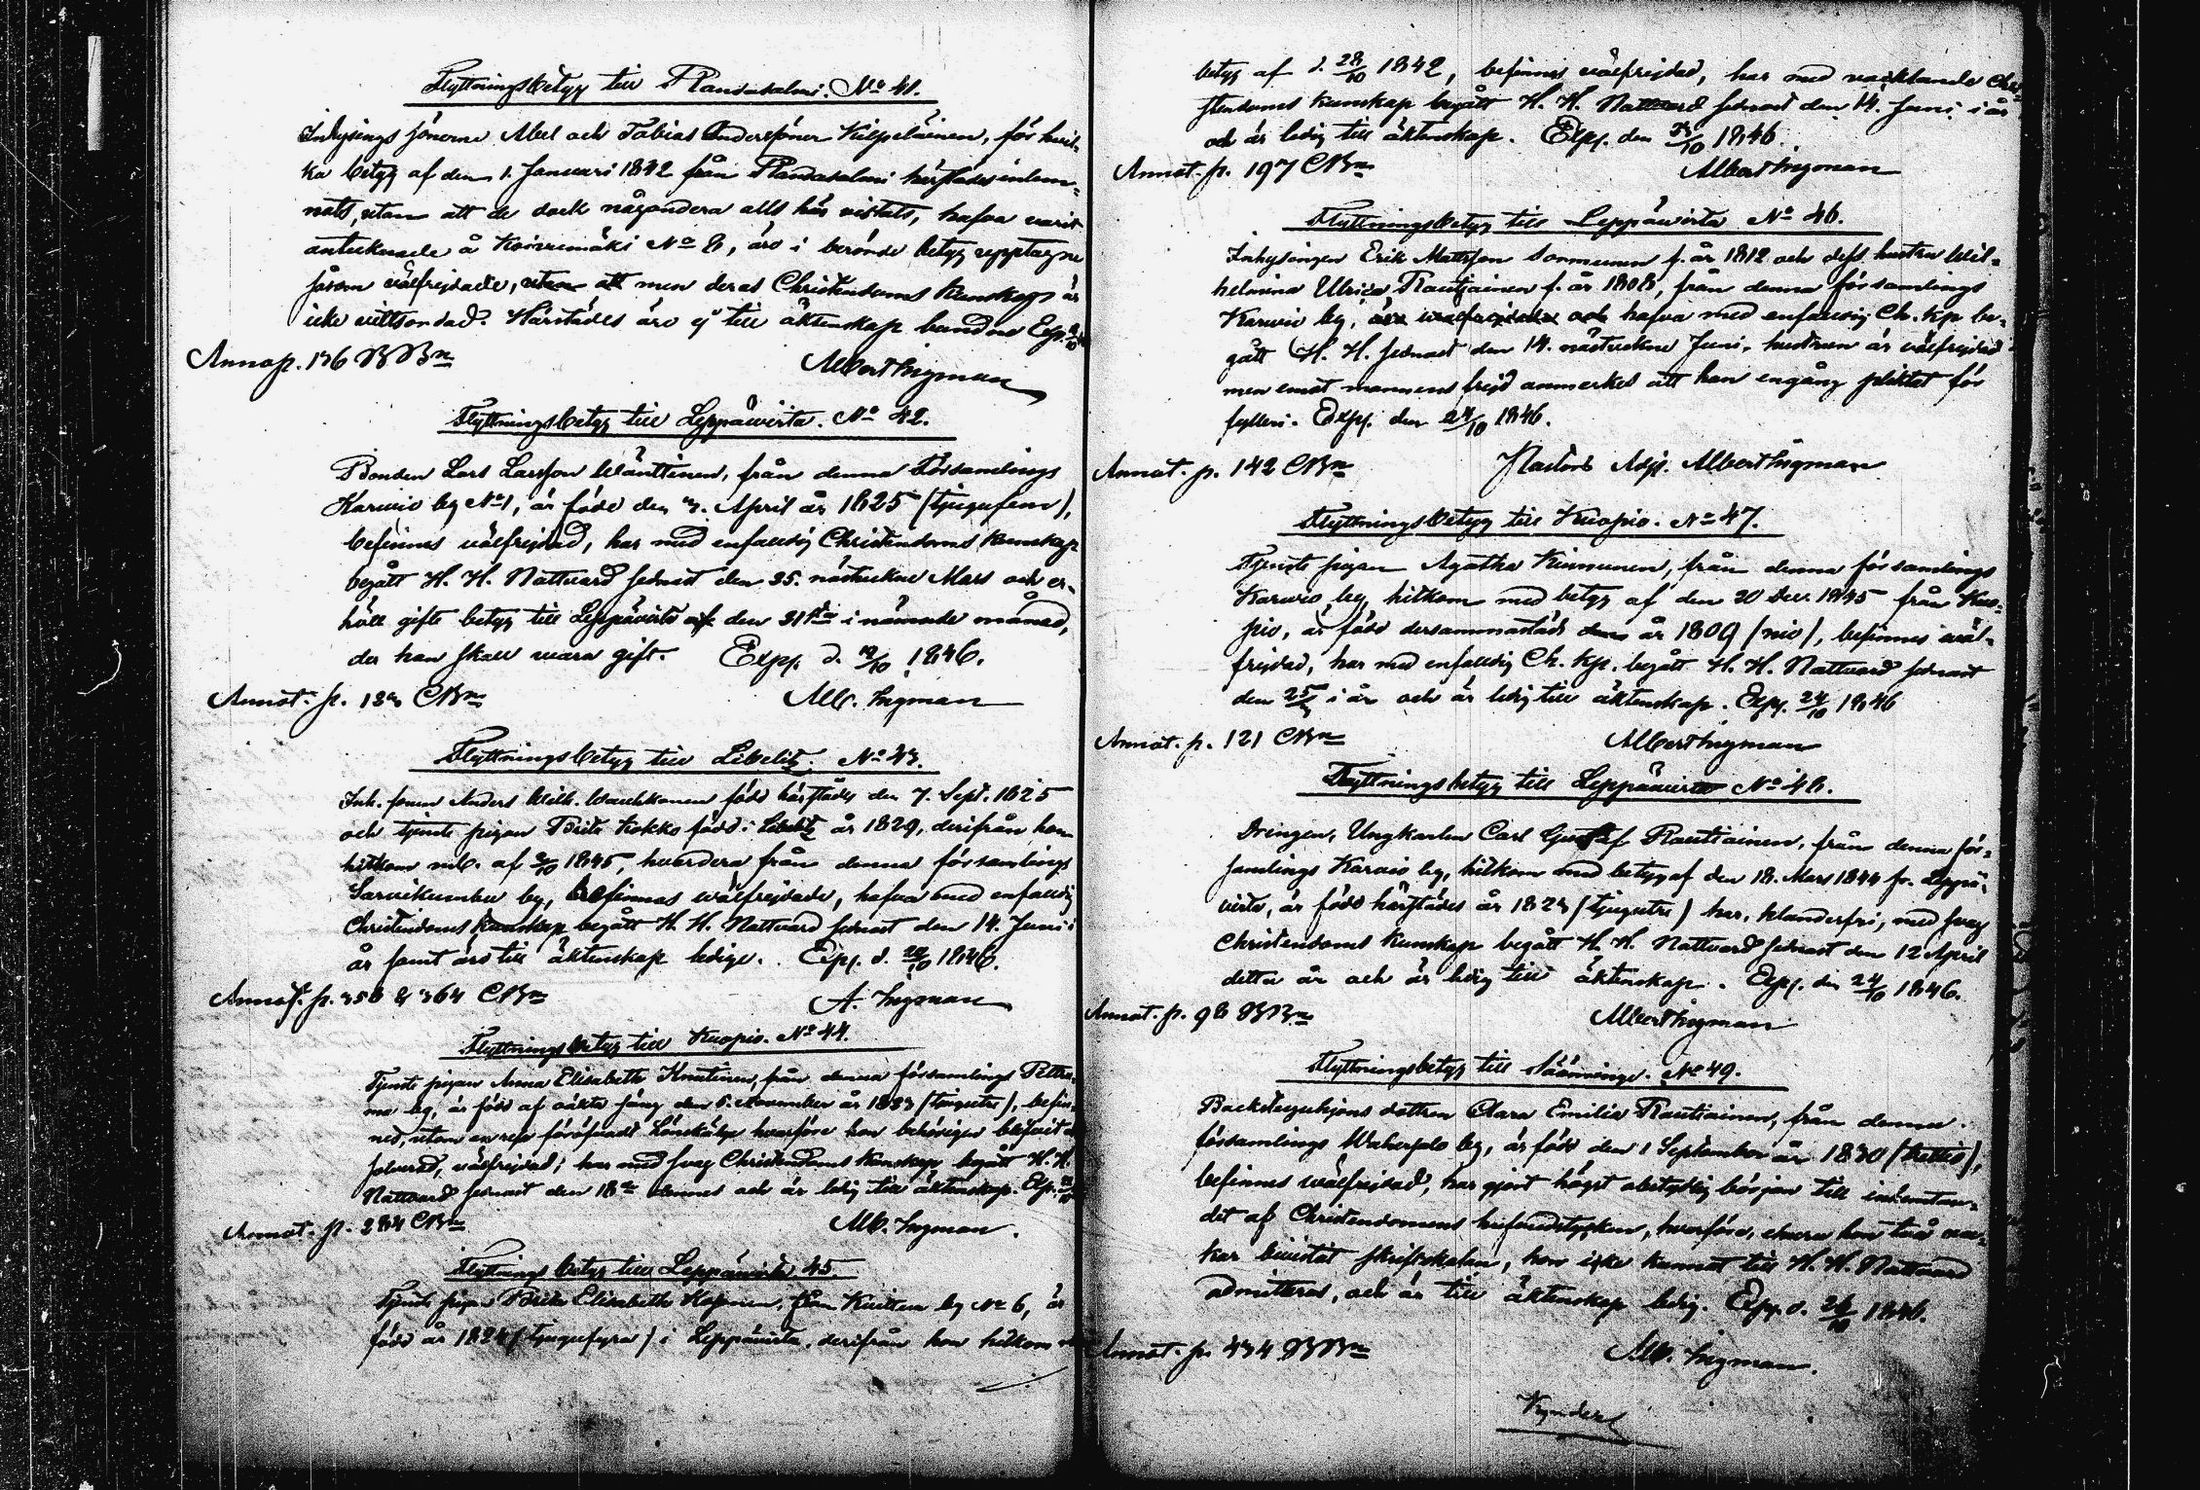 Flyttningsbetyg till Randasalmi. No 41.
Inhysings sönerne Abel och Tobias Anderssöner Kilpeläinen, för hvil-
ka betyg af den 1. Januari 1842 från Randasalmi härstädes inlem-
nats, utan att de dock någondera alls här vistats, hafva varit
antecknade å No 8, äro i berörde betyg upptagne
såsom välfrejdade, utan att men deras Christendoms kunskap är
icke vittsordad. Härstädes äro ej till äktenskap bundne Exp.
Anno p. 136 BBn
Albert Ingman
Flyttningsbetyg till Leppäwirta. No 42.
Bonden Lars Larsson Wänttinen, från denna Församlings
Karwio by No 1, är föde den 3. April år 1825 (tjugufem),
befinnes välfrejdad, har med enfaldig Christendoms kunskap
begått H. H. Nattvard sednast den 25. nästvekne Mars och er-
höll gifte betyg till Leppäwirta af den 31sta i nämnde månad,
der han skall vara gift. Exp. d. 19/10 1846.
Annot. p. CBn
Alb. Ingman
Flyttningsbetyg till Libelits. No 43.
Inh. sonen Anders Wilh. född härstädes den 7. Sept. 1825
och tjenste pigan Brita Kokko född i Libelits år 1829, derifrån hon
hitkom af 1845, hvardera från denna församlings
Sarvikumbu by, befinnas wälfrejdade, hafva med enfaldig
Christendoms kunskap begått H. H. Nattvard sednast den 14. Juni i
år samt äro till äktenskap ledige. Exp. d. 1846.
Annot. p. 358 & 364 CBn
A. Ingman
Flyttningsbetyg till Kuopio. No 44.
Tjenste pigan Anna Elisabeth Knutinen, från denna församlings Pettu-
ma by, är född af oäkta säng den November år 1823 (tjugutre), befin-
nes, utom en resa föröfvadt Lönskaläge hvarföre hon behörigen
, välfrejdad; har med svag Christendoms kunskap begått H. H.
Nattvard sednast den 18de dennes och är ledig till äktenskap. Exp.
Annot. p. 284 CBn
Alb. Ingman.
Flyttnings betyg till Leppäwirta 45.
Tjenste pigan Brita Elisabeth Koponen, från by No 6, är
född år 1824 (tjugufyra) i Leppäwirta, derifrån hon hitkom
betyg af d. 28/10 1842, befinnes välfrejdad, har med vacklande Chri-
stendoms kunskap begått H. H. Nattvard sednast den 14. Juni i år
och är ledig till äktenskap. Exp. den 1846.
Annot. p. 197 CBn
Albert Ingman
Flyttningsbetyg till Leppäwirta No 46.
Inhysingen Erik Mattsson Sormunen f. år 1812 och dess hustru Wil-
helmina Ulrica Rautiainen f. år 1808, från denna församlings
Karwio by, äro walfrejdade och hafva med enfaldig Ch. kp be-
gått H. H. sednast den 14. nästvekne Juni, hustrun är välfrejdad
men emot mannens frejd anmerkes att han engång pliktat för
fylleri. Exp. den 24/10 1846.
Annot. p. 142 CBn
Pastors Adj. Albert Ingman
Flyttningsbetyg till Kuopio. No 47.
Tjenste pigan Agatha Kinnunen, från denna församlings
Karwio by, hitkom med betyg af den 20 Dec. 1845 från Kuo-
pio, är född dersammastäds år 1809 (nio), befinnes wäl-
frejdad, har med enfaldig Ch. kp. begått H. H. Nattvard sednast
den i år och är ledig till äktenskap. Exp. 24/10 1846
Annot. p. 121 CBn
Albert Ingman
Flyttningsbetyg till Leppäwirta No 48.
Drengen, Ungkarlen Carl Gustaf Rautiainen, från denna för-
samlings Karwio by, hitkom med betyg af den 18. Mars 1844 fr. Leppä-
virta, är född härstädes år 1823 (tjugutre) har, klanderfri, med svag
Christendoms kunskap begått H. H. Nattvard sednast den 12 April
detta år och är ledig till äktenskap. Exp. den 24/10 1846.
Annot. p. 98 BBn
Albert Ingman
Flyttningsbetyg till Sääminge. No 49.
Backstuguhjons dottren Clara Emilia Rautiainen, från denna
församlings by, är född den 1 September år 1830 (trettio),
befinnes wälfrejdad, har gjort högst obetydlig början till inhemtan-
det af Christendomens hufvudstycken, hvarföre, ehuru hon två
kar bivistat skriftskolan, hon icke kunnat till H. H. Nattvard
admitteras, och är till äktenskap ledig. Exp. d. 1846.
Annot. p. 434 BBn
Alb. Ingman.